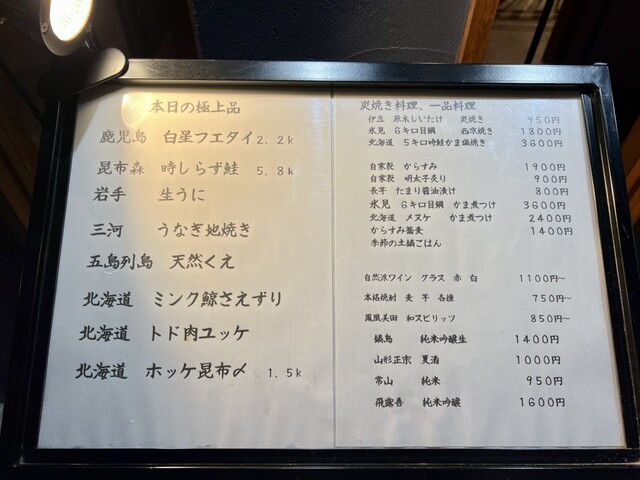 本日の極上品
鹿児島 白星フエダイ 2.2k
昆布森 時しらず鮭 5.8k
岩手 生うに
三河 うなぎ地焼き
五島列島 天然くえ
北海道 ミンク鯨さえずり
北海道 トド肉ユッケ
北海道 ホッケ昆布〆 1.5k
炭焼き料理、一品料理
伊豆 原木しいたけ 炭焼き 950円
氷見 6キロ目鯛 西京焼き 1800円
北海道 5キロ時鮭かま塩焼き 3600円
自家製 からすみ 1900円
自家製 明太子炙り 900円
長芋 たまり醤油漬け 800円
氷見 6キロ目鯛 かま煮つけ 3600円
北海道 メヌケ かま煮つけ 2400円
からすみ蕎麦 1400円
季節の土鍋ごはん
自然派ワイン グラス 赤 白 1100円〜
本格焼酎 麦 芋 各種 750円〜
鳳凰美田 和スピリッツ 850円〜
鍋島 純米吟醸生 1400円
山形正宗 夏酒 1000円
常山 純米 950円
飛露喜 純米吟醸 1600円